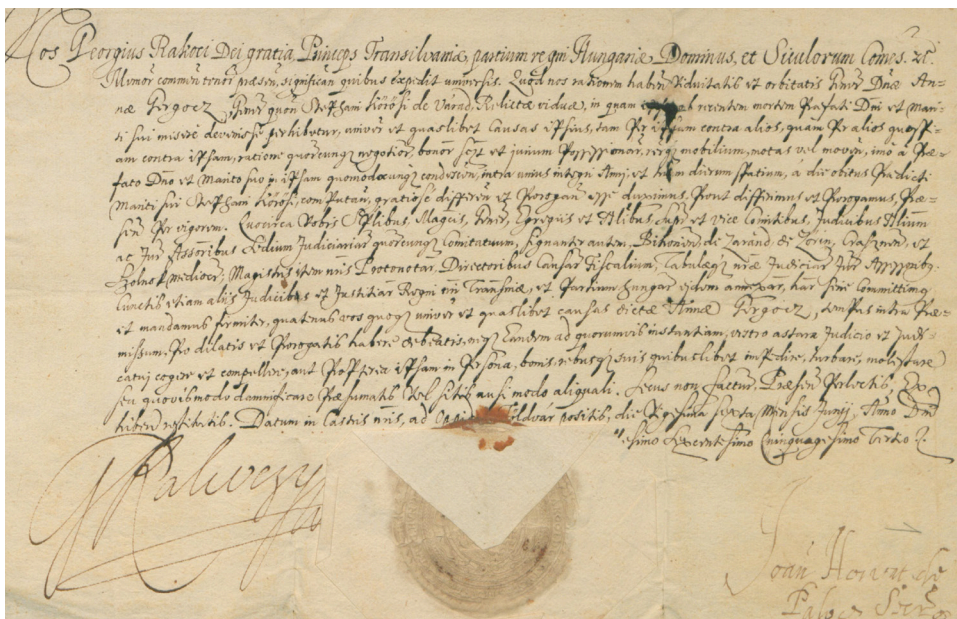 Nos Georgius Rakoci Dei gratia Princeps Transilvaniæ, partium regni Hungariæ Dominus, et Siculorum Comes. zc.
Memor commen tenor præsen, significan quibus expedit universis. Quod nos rationem haben Viduitatis et orbitatis Gner Dnæ An-
næ Gergocz Gner quon Stephani Körösi de Varad, Relictæ viduæ, in quam ob recentem mortem Præfati Dni et Mari-
ti sui misere devenisse perhibetur, univer et quaslibet causas ipsius, tam Per ipsam contra alios, quam Pr alios quosp-
iam contra ipsam, ratione quorcunqz negotior, bonor scqt et jurium Possessionar, rerqz mobilium, motas vel moven, imo à Præ-
fato Dno et Marito suo p ipsam quomodocunqz condescen, intra unius integri Anni, et dierum spatium, a die obitus Prædicti
Mariti sui Stephani Körösi, computan, gratiose differen et Prorogan esse duximus. Prout differimus et Prorogamus, Præ-
sen Per vigorem. Quocirca Vobis Splibus Magcis, Gner, Egregiis et Nlibus, Supr et Vice Comitibus, Judicibus Nlium
ac Jur Assoribus Sedium Judiciariar quorcunqz Comitatuum, signanter autem, Bihorien de Zarand, de Crasznen, et
Szolnok mediocr, Magistris item nris Protonotar, Directoribus Causar Fiscalium, Tabulæqz nræ Judiciar Jur
Cunctis etiam aliis Judicibus et Justitiar Regni Transniæ, et Partium Hungar eidem annexar, har serie Committimq
et mandamus firmiter, quatenus vos quoqz univer et quaslibet causas dictæ Annæ Gergocz, tempus intra Præ-
missum, Pro dilatis et Prorogatis habere debeatis, neqz Eandem ad quorumvis instantiam, vestro astare Judicio et Judi-
catui cogere et compellere, aut Propterea ipsam in Persona, bonis, rebusqz suis quibuslibet impedire, turbare, molestare
seu quovismodo damnificare Præsumatis Vel sitis ausi modo aliquali. Secus non factur. Præsen Perlectis, Ex
hiben restitutis. Datum in Castris nris, ad positis, die Vigesima sexta Mensis Junij, Anno Dni
esimo Sexcentesimo Quinquagesimo Tertio
GRakoczy
Joan Horvat de
Palocz Secr